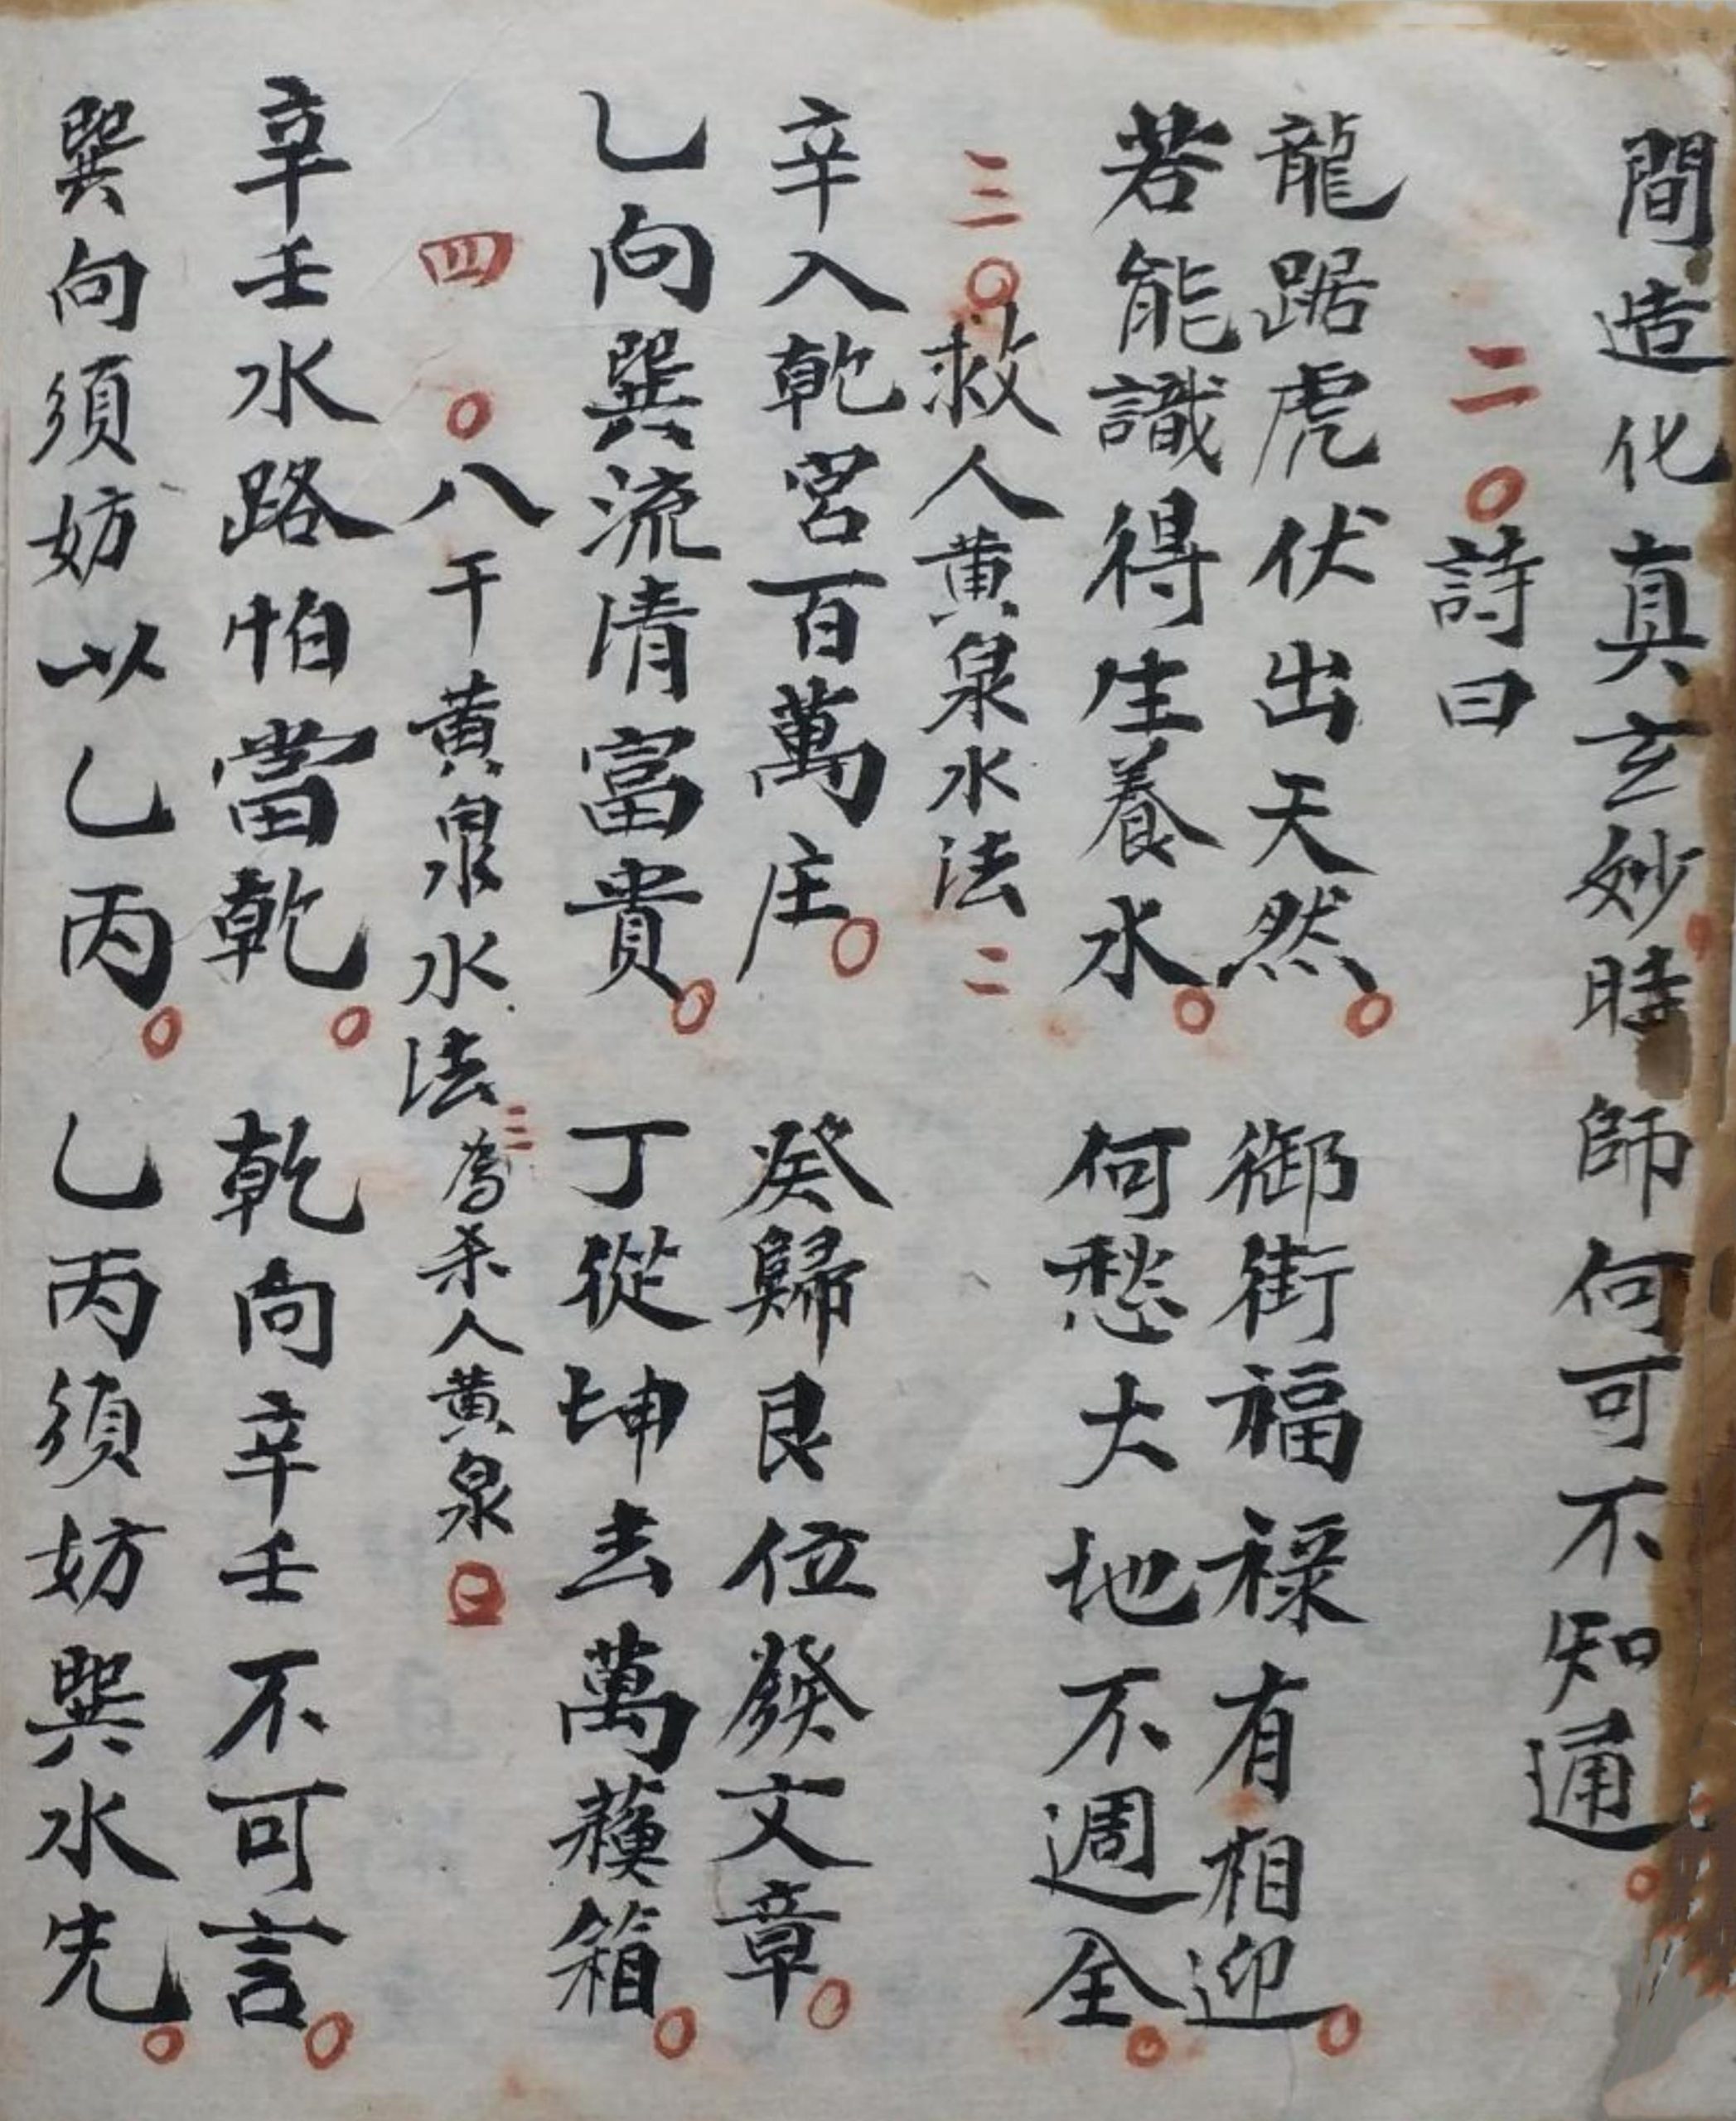 間造化真玄妙時師何可不知通。
二〇詩曰
龍踞虎伏出天然。御街福祿有相迎。
若能識得生養水。何愁大地不週全。
三〇救人黄泉水法二
辛入乾宮百萬庄。癸歸艮位發文章。
乙向巽流清富貴。丁從坤去萬箱。
四〇八干黄泉水法三為杀人黄泉
辛壬水路怕當乾。乾向辛壬不可言。
巽向須妨以乙丙。乙丙須妨巽水先。